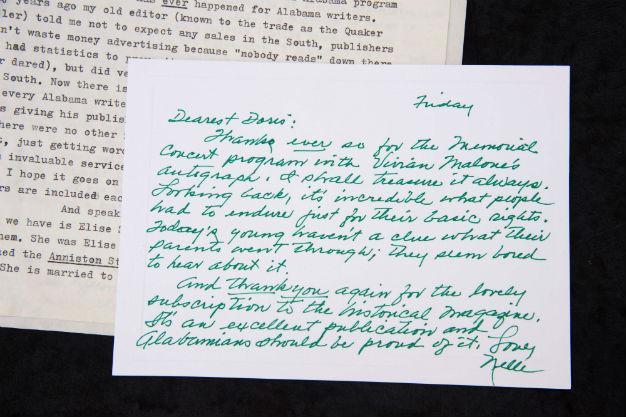 Alabama program
years ago my old editor (known to the trade as the Quaker
ever happened for Alabama writers.
ler) told me not to expect any sales in the South, publishers
n't waste money advertising because "nobody reads" down there
had statistics to
r dared), but did
South. Now there is
every Alabama write
s giving his publis
here were no other
, just getting word
invaluable service
I hope it goes on
rs are included eac
And speak
we have is Elise S
hem. She was Elise
ned the Anniston St
She is married to
Friday
Dearest Doris:
Thanks ever so for the Memorial
Concert program with Vivian Malone's
autograph. I shall treasure it always.
Looking back, it's incredible what people
had to endure just for their basic rights.
Today's young haven't a clue what their
parents went through; they seem bored
to hear about it.
And thank you again for the lovely
subscription to the historical magazine.
It's an excellent publication and
Alabamians should be proud of it. Love,
Nelle